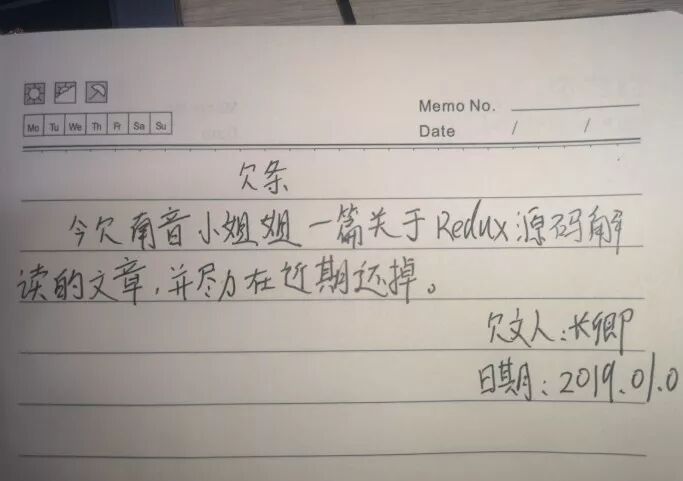 Memo No.
Mo Tu We Th Fr Sa Su
Date / /
欠条
今欠南音小姐姐一篇关于Redux源码解
读的文章,并尽力在近期还掉。
欠文人:长卿
日期:2019.01.0